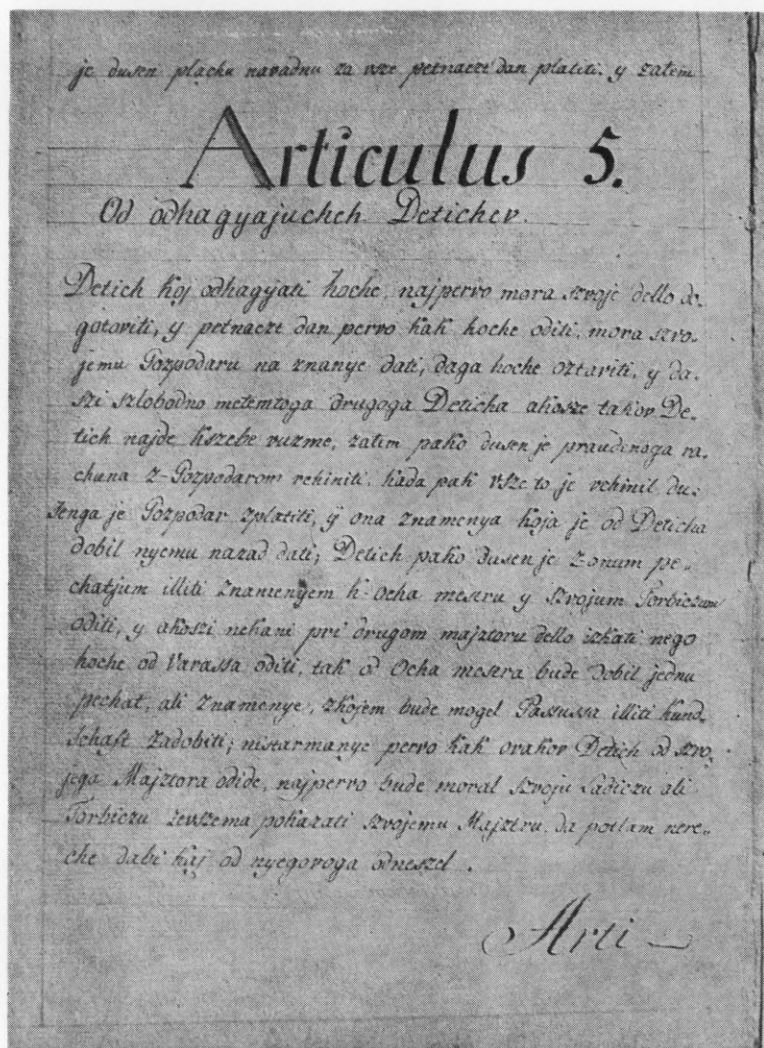 je dusen plachu navadnu za vsze petnaezt dan platiti. y zatem
Articulus 5.
Od odhagyajucheh Detichev.
Detich koj odhagyati hoche, najpervo mora szvoje dello do-
gotoviti, y petnaezt dan pervo kak hoche oditi, mora szvo-
jemu Gozpodaru na znanye dati, daga hoche oztaviti, y da-
szi szlobodno metemtoga drugoga Deticha akosze takov De-
tich najde kszebe vuzme, zatem pako dusen je praudenoga ra-
chuna z-Gozpodarom vchiniti. kada pak vsze to je vchinil du-
senga je Gozpodar zplatiti, ÿ ona znamenya koja je od Deticha
dobil nyemu nazad dati; Detich pako dusen je z onum pe-
chatjum illiti znamenyem k-Ocha mestru y szvojum Torbiczum
oditi, y akoszi nekani pri drugom majztoru dello izkati nego
hoche od Varassa oditi, tak od Ocha mestra bude dobil jednu
pechat, ali znamenye, zkojem bude mogel Passussa illiti kund-
schaft zadobiti; nistarmanye pervo kak ovakov Detich od szvo-
jega Majztora odide, najpervo bude moral szvoju Ladiczu ali
Torbiczu zevszema pokazati szvojemu Majztru, da potlam nere-
che dabi kaj od nyegovoga odneszel.
Arti-